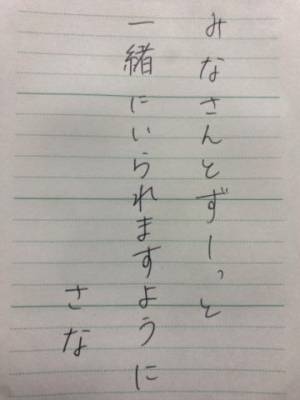 みなさんとずーっと
一緒にいられますように
さな